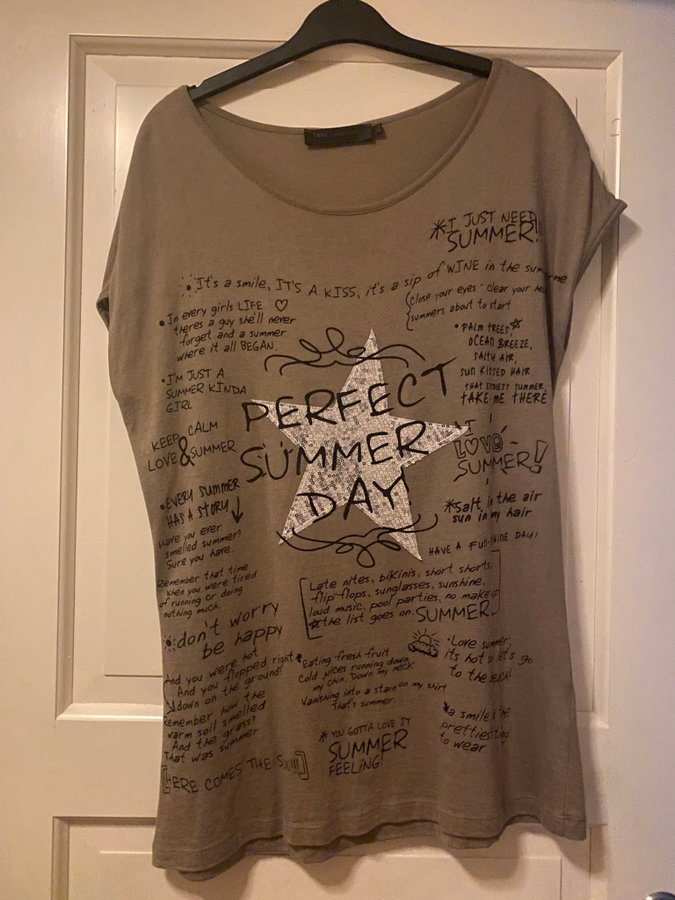 *I JUST NEED
SUMMER!!
It's a smile, IT'S A KISS, it's a sip of WINE in the
Close your eyes clear your
summers about to start
In every girls LIFE
theres a guy she'll never
forget and a summer
where it all BEGAN.
PALM TREES,
OCEAN BREEZE,
SALTY AIR,
SUN KISSED HAIR
THAT ENDLESS SUMMER,
TAKE ME THERE
I'M JUST A
SUMMER KINDA
GIRL
PERFECT
SUMMER
DAY
KEEP CALM
&
LOVE SUMMER
I
LOVE
SUMMER!
EVERY SUMMER
HAS A STORY
Have you ever
smelled summer?
Sure you have.
Remember that time
when you were tired
of running or doing
nothing much.
*Salt in the air
sun in my hair
HAVE A FUN-SHINE DAY!
Late nites, bikinis, short shorts,
flip-flops, sunglasses, sunshine,
loud music, pool parties, no makeup
the list goes on SUMMER.
don't worry
be happy
And you were hot
And you flopped right
down on the ground?
Remember how the
warm soil smelled
And the grass?
That was summer
[HERE COMES THE
*Eating fresh fruit
Cold juices running down
my chin. Down my neck
Vanishing into a stain on my shirt
That's summer
Love summer,
its hot let's go
to the
*YOU GOTTA LOVE IT
SUMMER
FEELING!
*a smile's the
prettiest
to wear